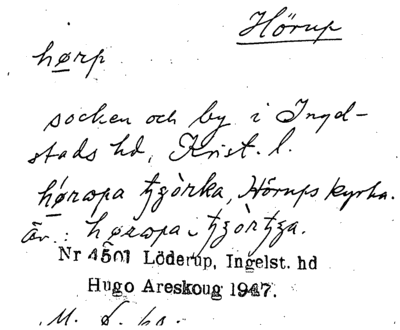 Hörup
hørp
socken och by i Ingel-
stads hd, Krist. l.
hø̀rəpa tzòrka, Hörups kyrka.
Äv.: hørəpa tzòrtza.
Nr 4501 Löderup, Ingelst. hd
Hugo Areskoug 1947.